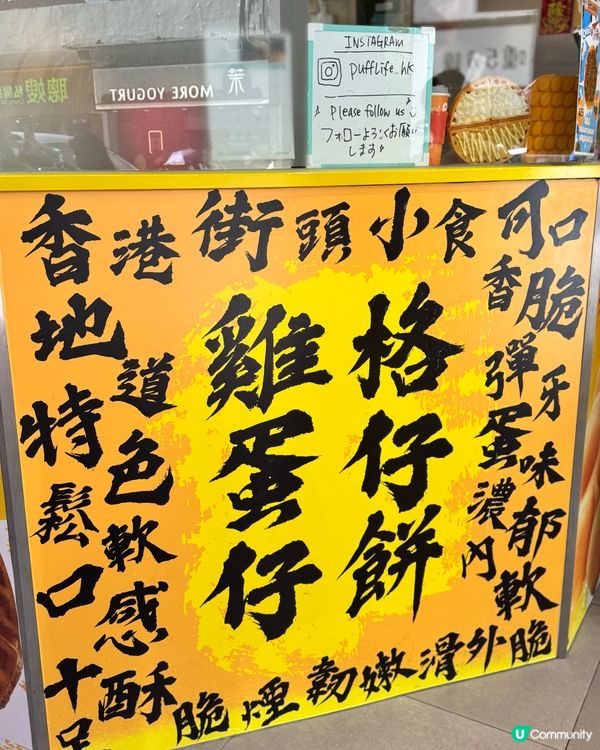 INSTAGRAM
pufflife.hk
Please follow us
フォローよろしくお願い
します
MORE YOGURT
茉
香港街頭小食可口
地道特色
鬆軟口感十足
香脆彈牙
蛋味濃郁
內軟外脆
酥脆煙韌嫩滑
雞蛋仔
格仔餅
U Community